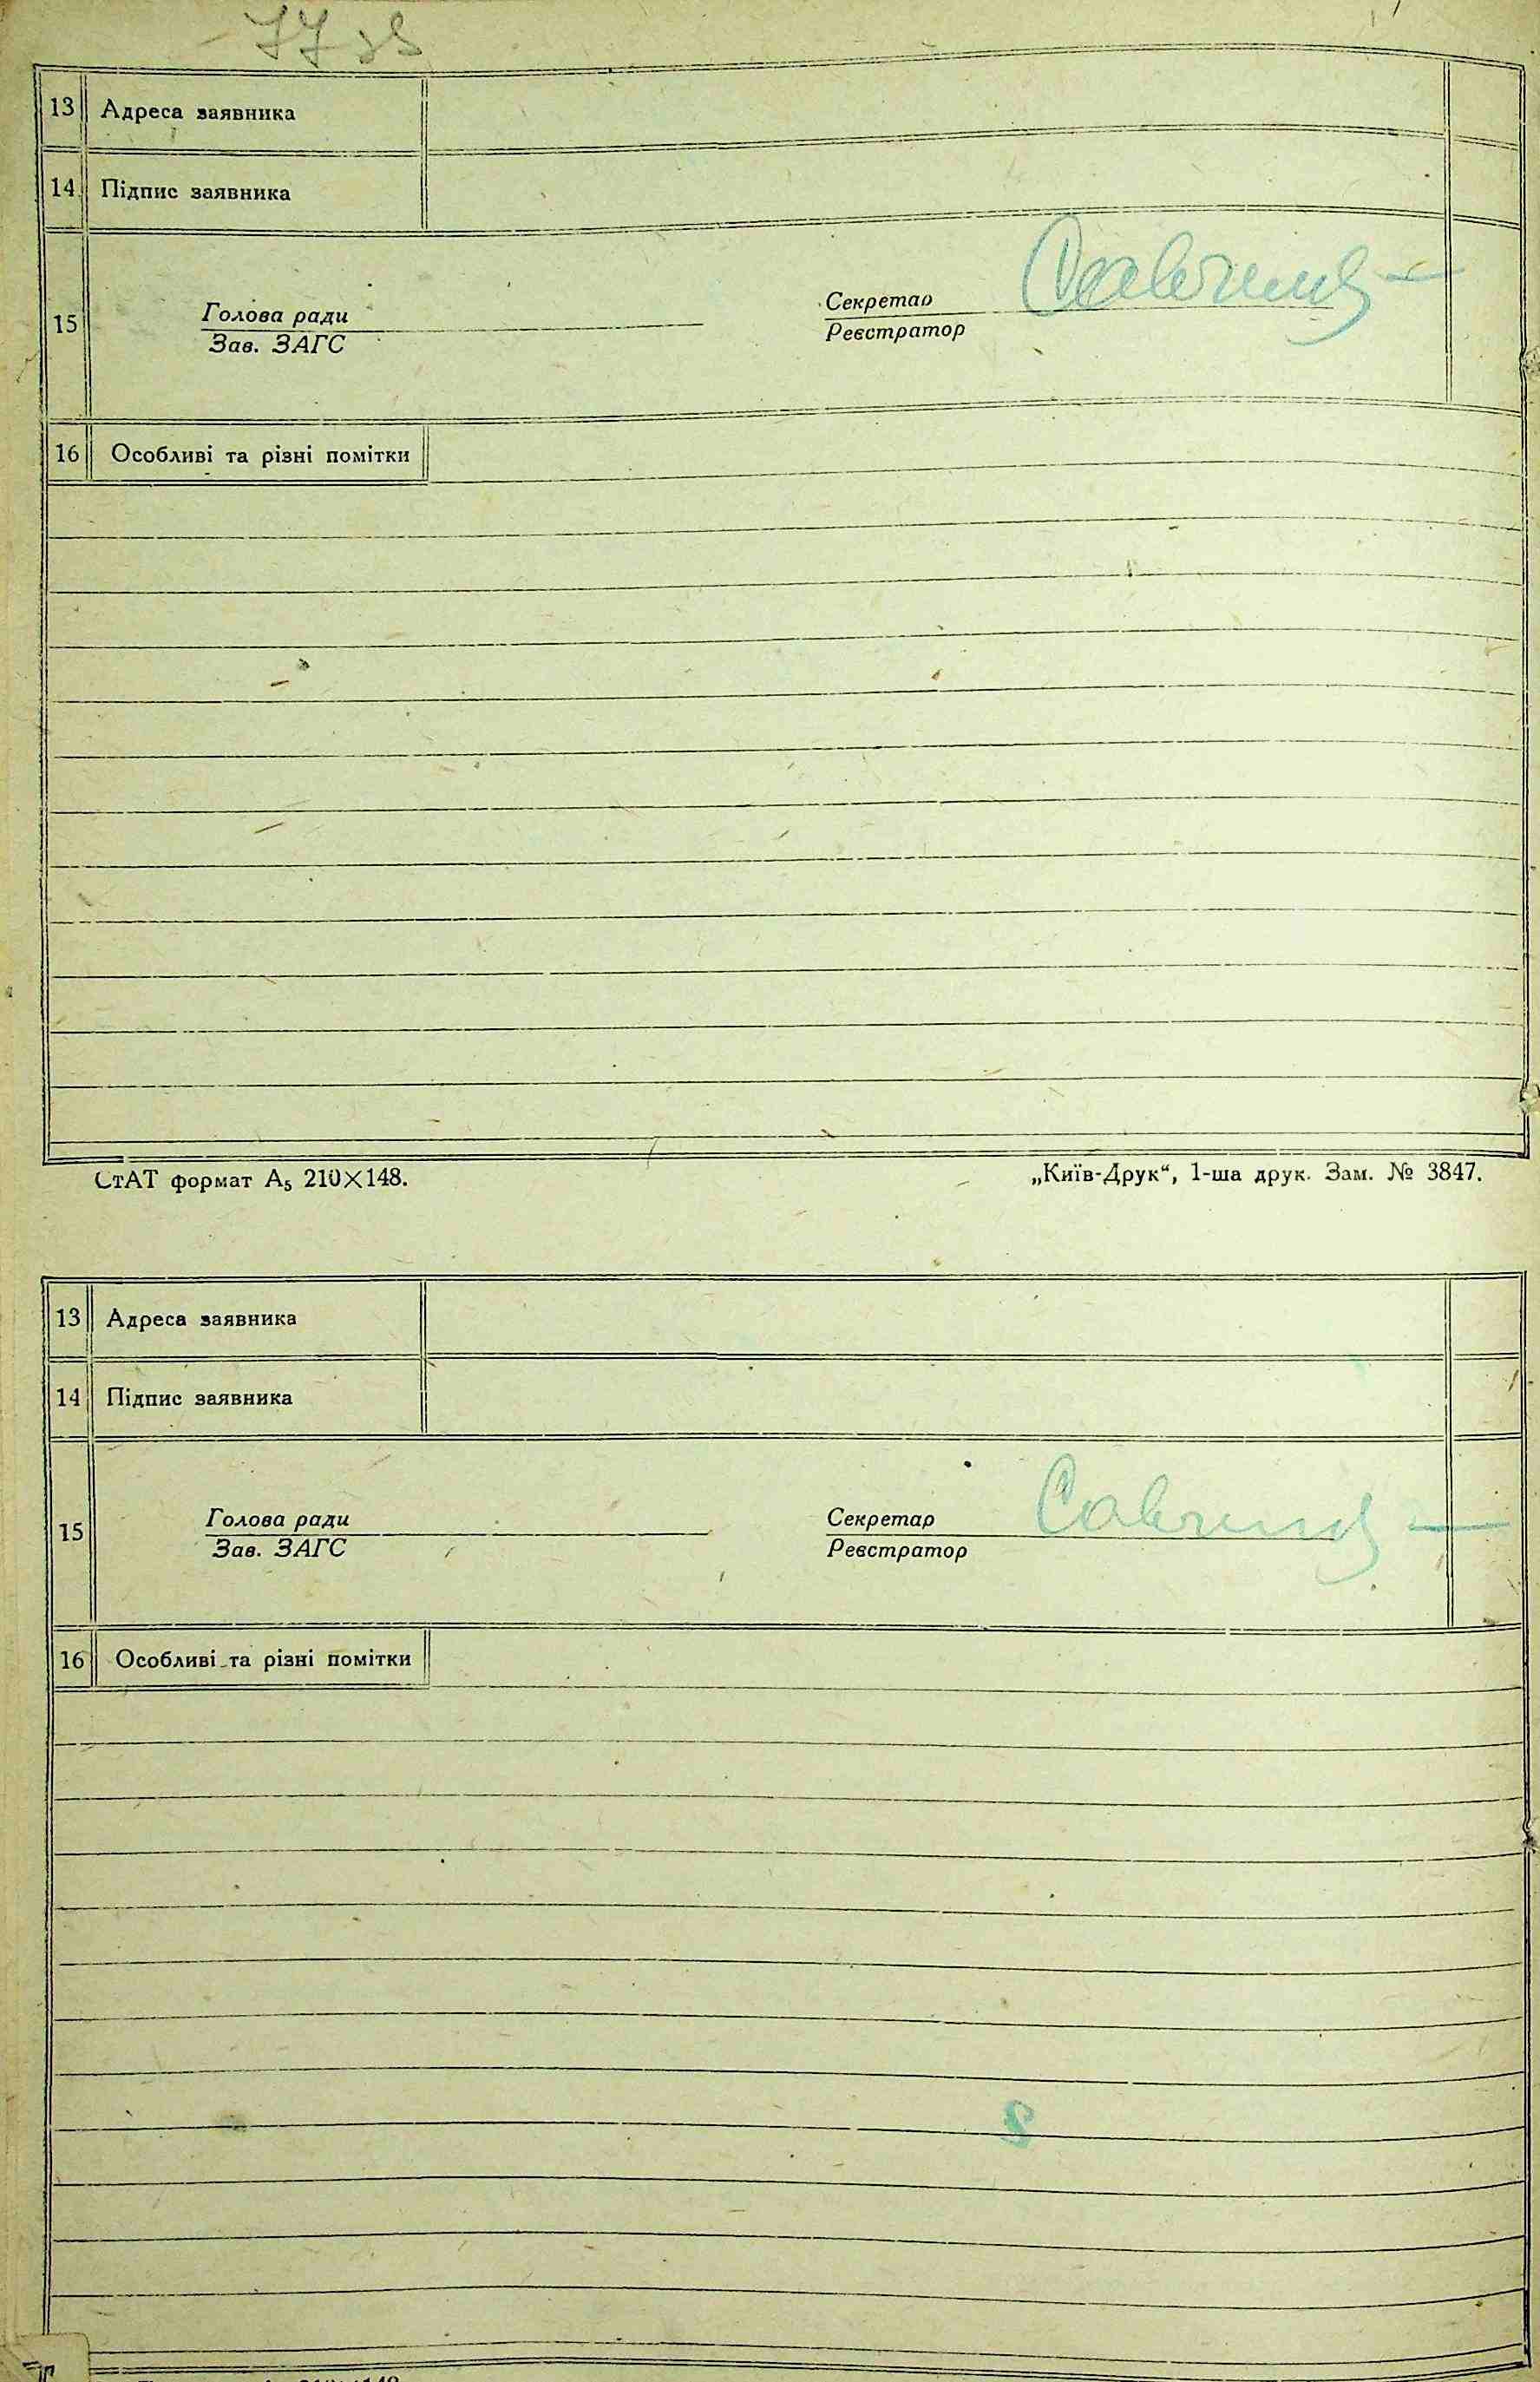 77 зв
13 Адреса заявника
14 Підпис заявника
15 Голова ради Секретар
Зав. ЗАГС Реєстратор
16 Особливі та різні помітки
СтАТ формат А₅ 210×148. „Київ-Друк“, 1-ша друк. Зам. № 3847.
13 Адреса заявника
14 Підпис заявника
15 Голова ради Секретар
Зав. ЗАГС Реєстратор
16 Особливі та різні помітки